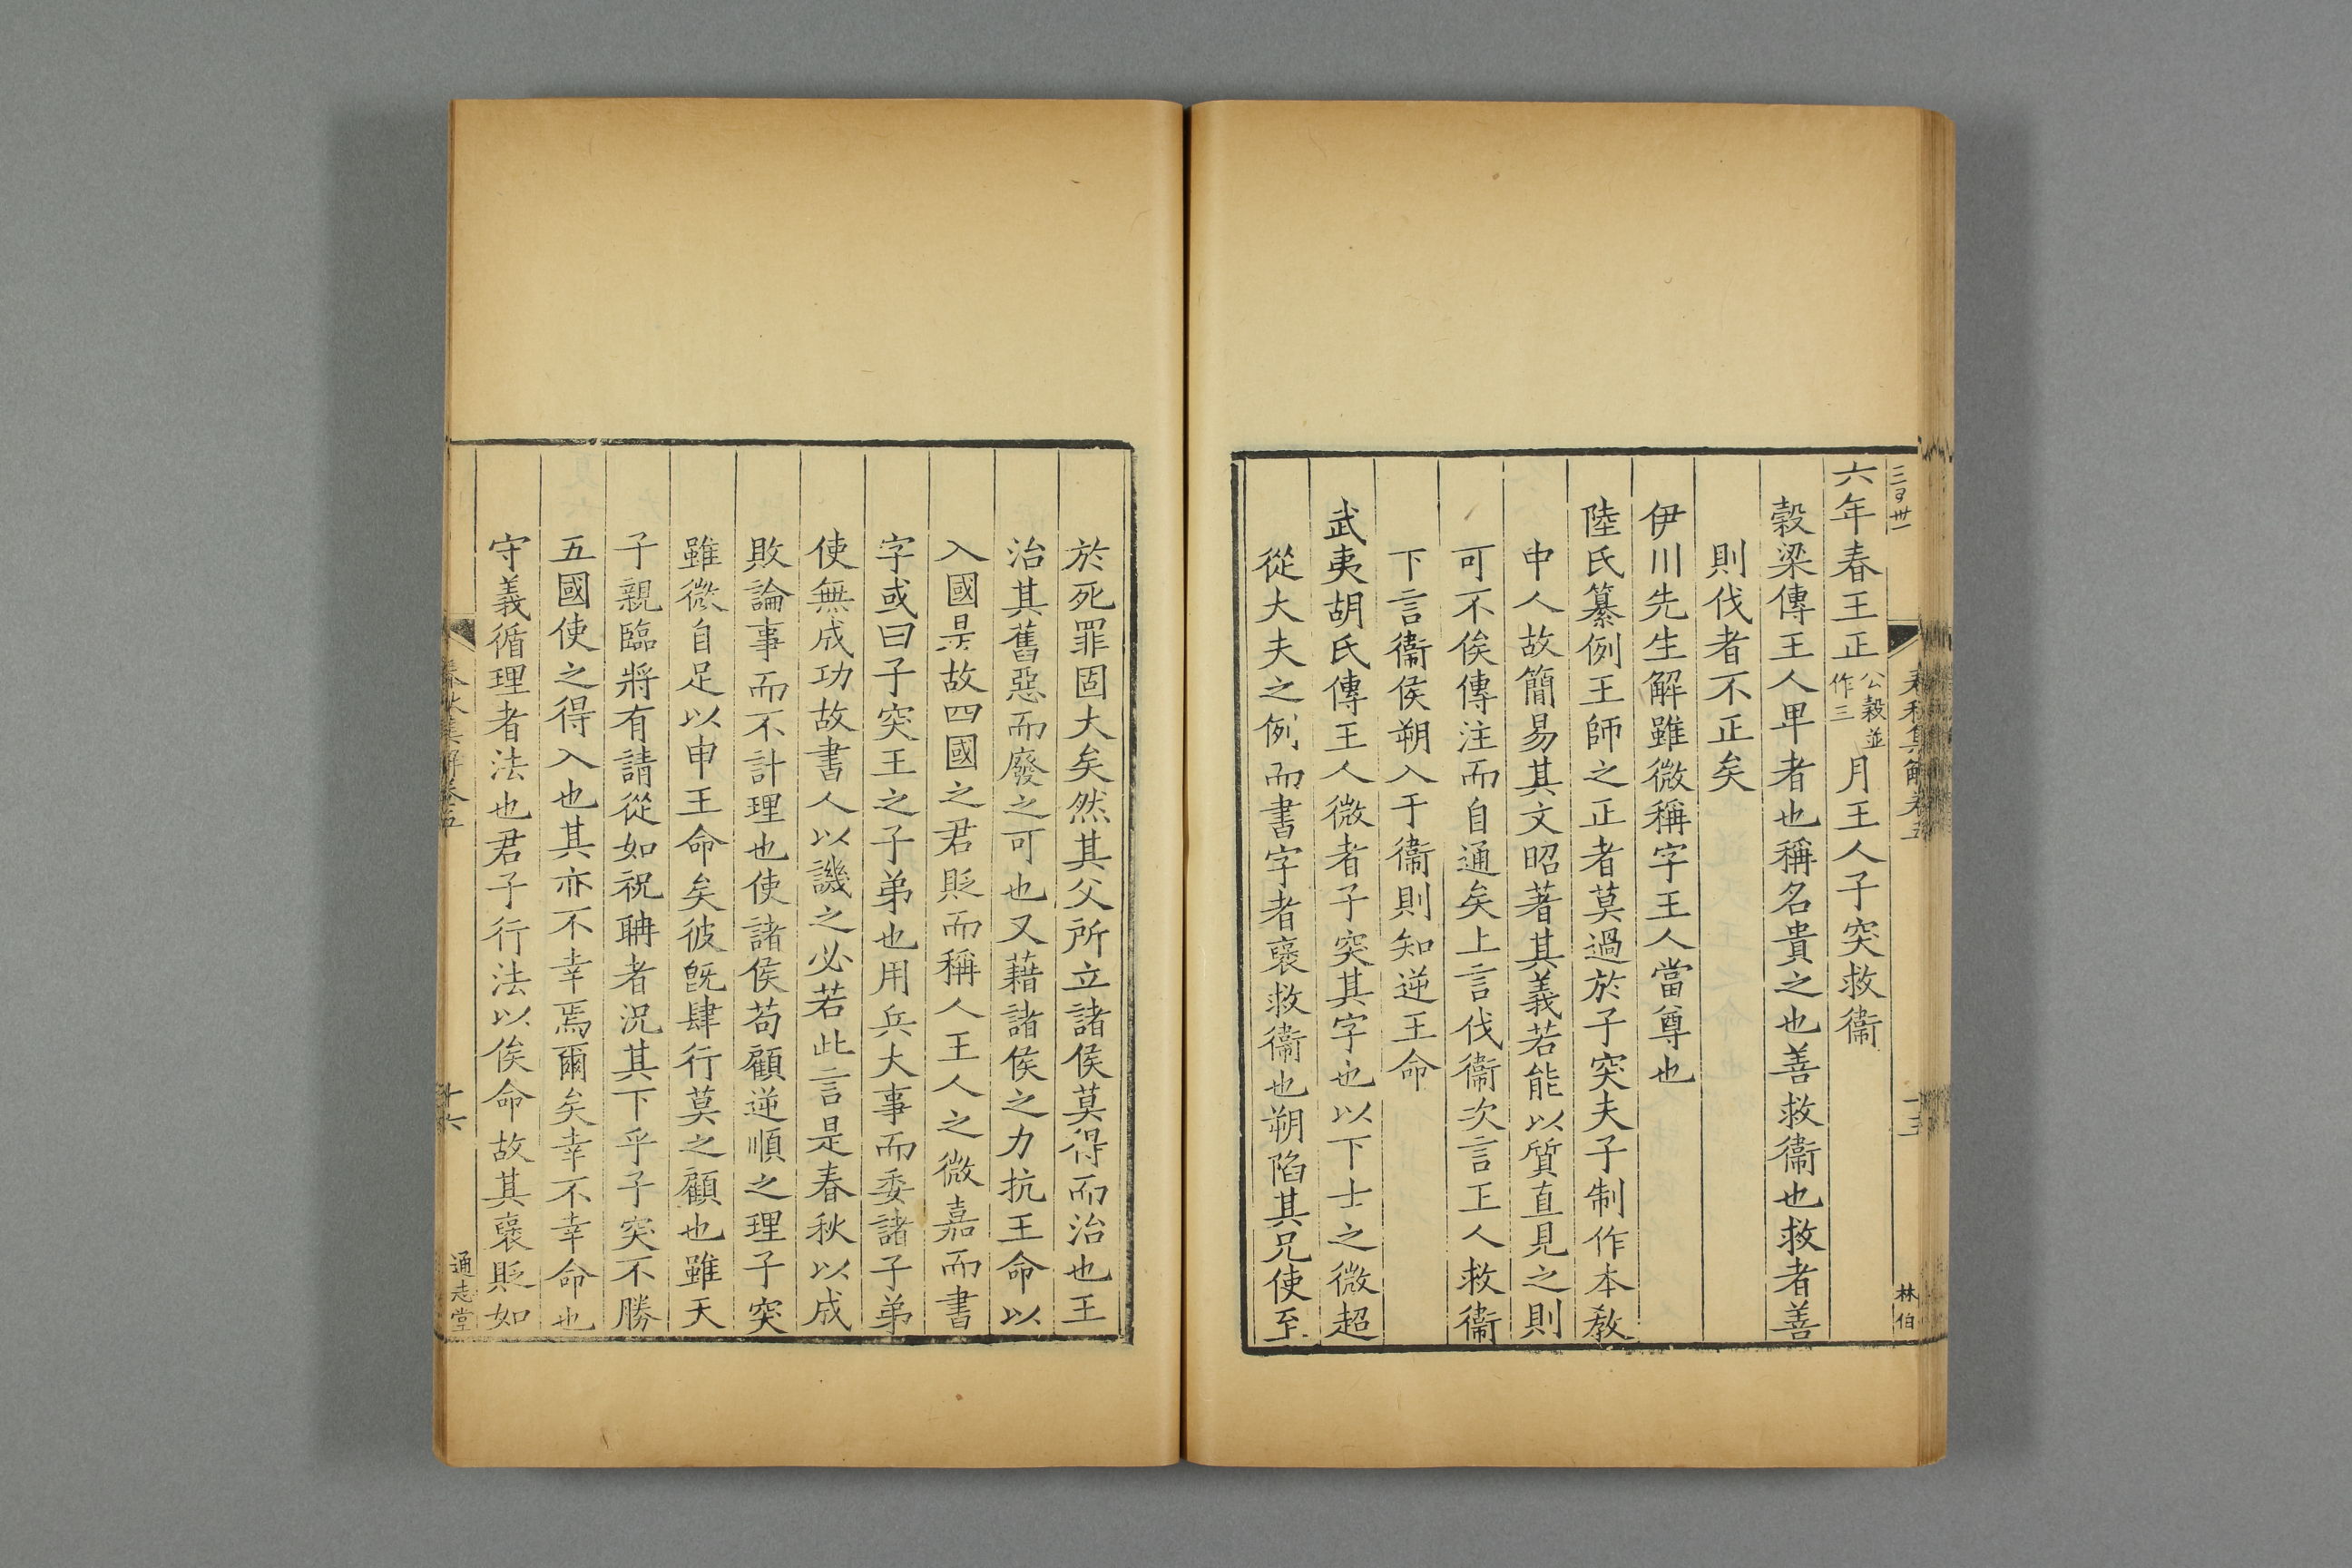 春秋集解卷五
林伯
六年春王正公穀並作三月王人子突救衞
穀梁傳王人卑者也稱名貴之也善救衞也救者善
則伐者不正矣
伊川先生解雖微稱字王人當尊也
陸氏纂例王師之正者莫過於子突夫子制作本教
中人故簡易其文昭著其義若能以質直見之則
可不俟傳注而自通矣上言伐衞次言王人救衞
下言衞侯朔入于衞則知逆王命
武夷胡氏傳王人微者子突其字也以下士之微超
從大夫之例而書字者襃救衞也朔陷其兄使至
於死罪固大矣然其父所立諸侯莫得而治也王
治其舊惡而廢之可也又藉諸侯之力抗王命以
入國是故四國之君貶而稱人王人之微嘉而書
字或曰子突王之子弟也用兵大事而委諸子弟
使無成功故書人以譏之必若此言是春秋以成
敗論事而不計理也使諸侯苟顧逆順之理子突
雖微自足以申王命矣彼旣肆行莫之顧也雖天
子親臨將有請從如祝聃者況其下乎子突不勝
五國使之得入也其亦不幸焉爾矣幸不幸命也
守義循理者法也君子行法以俟命故其襃貶如
春秋集解卷五
十六
通志堂